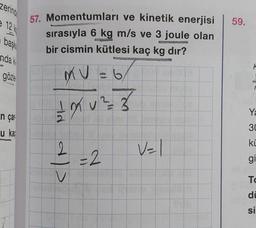 zerind
e 12 k
başk
nda k
göze
n ça
u ka
57. Momentumları ve kinetik enerjisi
sırasıyla 6 kg m/s ve 3 joule olan
bir cismin kütlesi kaç kg dır?
mv = 6
1/2 m v² = 3
2/v = 2
v=1
59.
Ya
30
kü
gi
To
dü
si